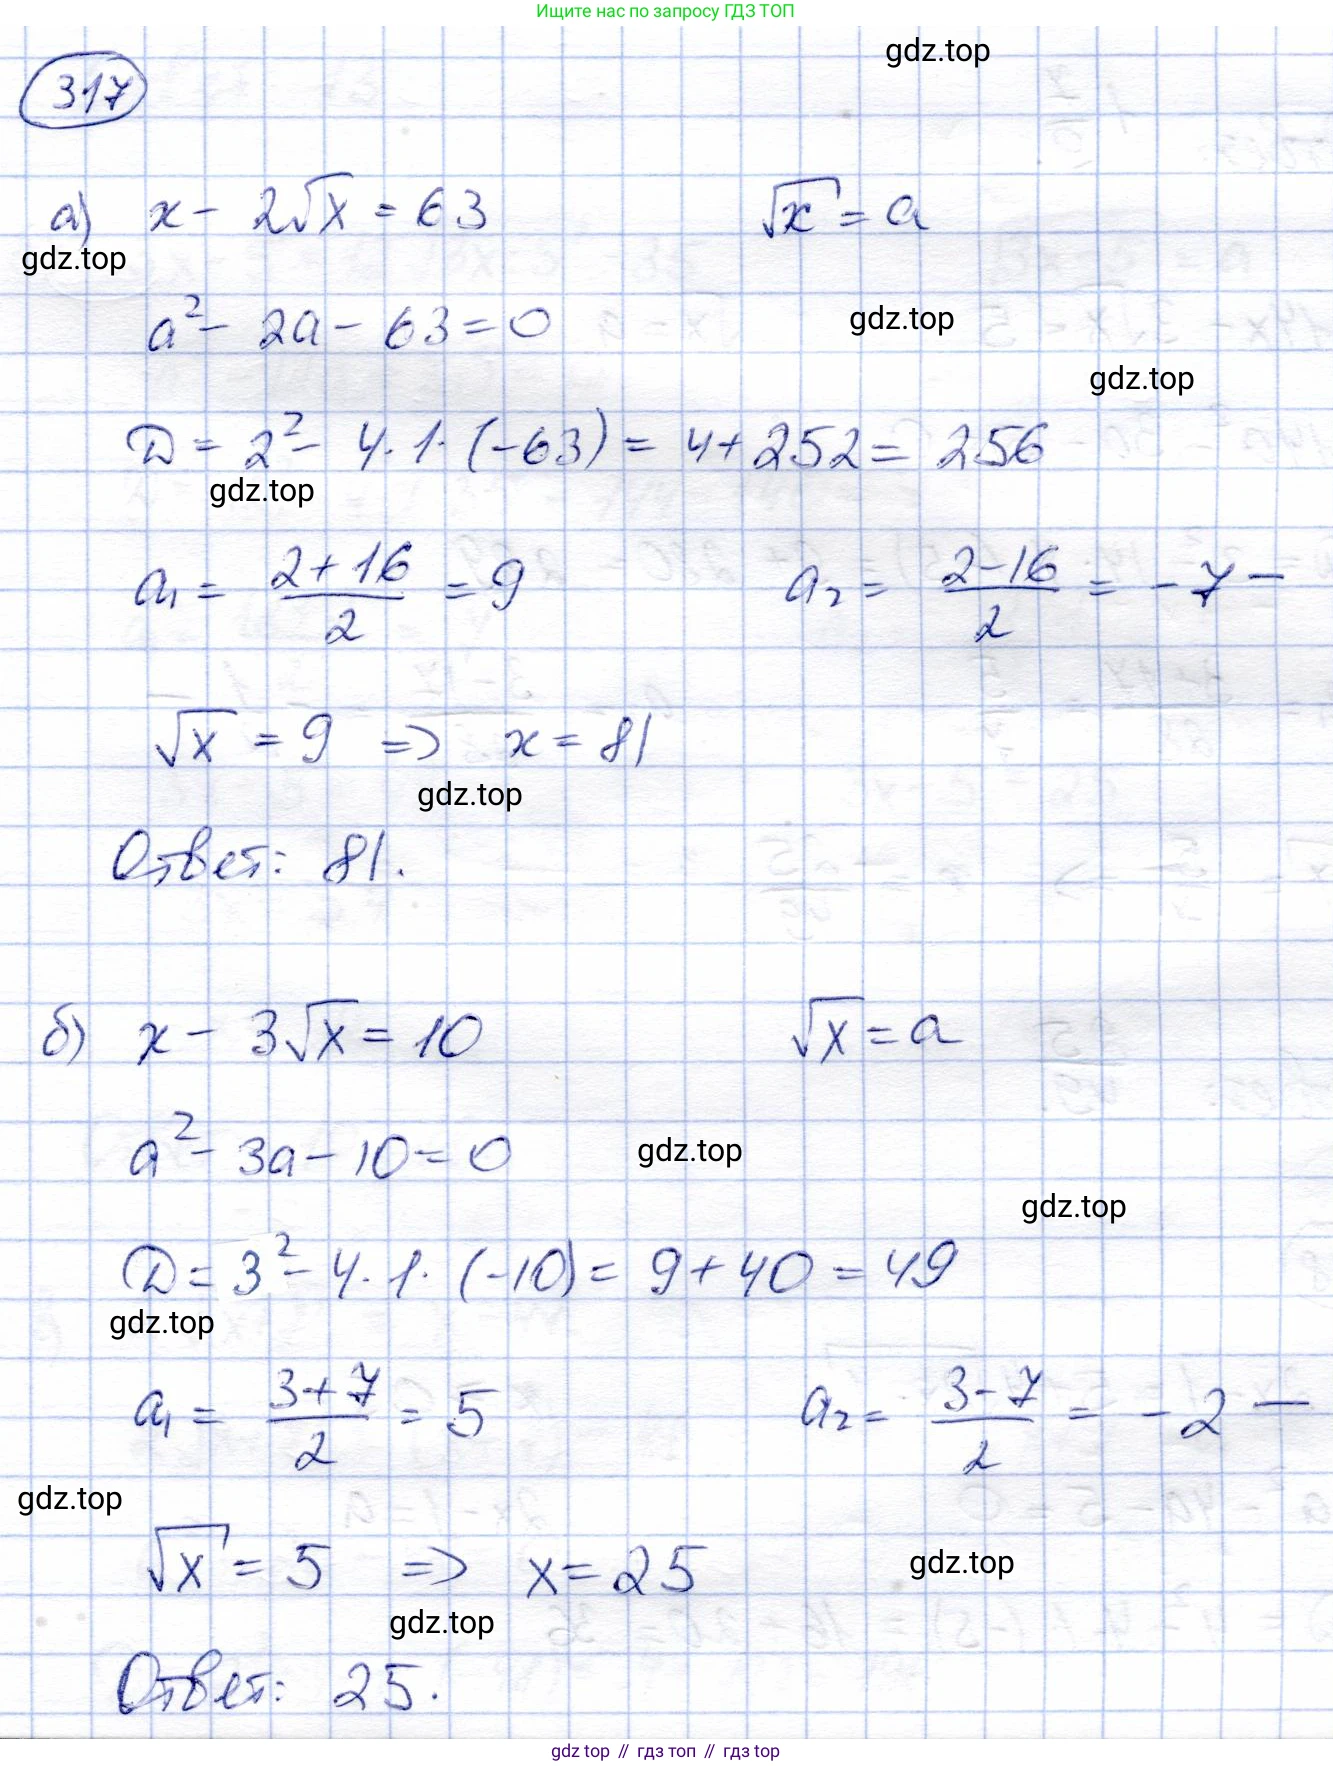 Ищите нас по запросу ГДЗ ТОП
gdz.top
317
а) x - 2√x = 63   √x = a
gdz.top
a² - 2a - 63 = 0
gdz.top
gdz.top
D = 2² - 4·1·(-63) = 4 + 252 = 256
gdz.top
a₁ = (2+16)/2 = 9   a₂ = (2-16)/2 = -7 —
√x = 9 => x = 81
gdz.top
Ответ: 81.
б) x - 3√x = 10   √x = a
a² - 3a - 10 = 0
gdz.top
gdz.top
D = 3² - 4·1·(-10) = 9 + 40 = 49
gdz.top
a₁ = (3+7)/2 = 5   a₂ = (3-7)/2 = -2 —
gdz.top
√x = 5 => x = 25
gdz.top
gdz.top
Ответ: 25.
gdz top // гдз топ // гдз top